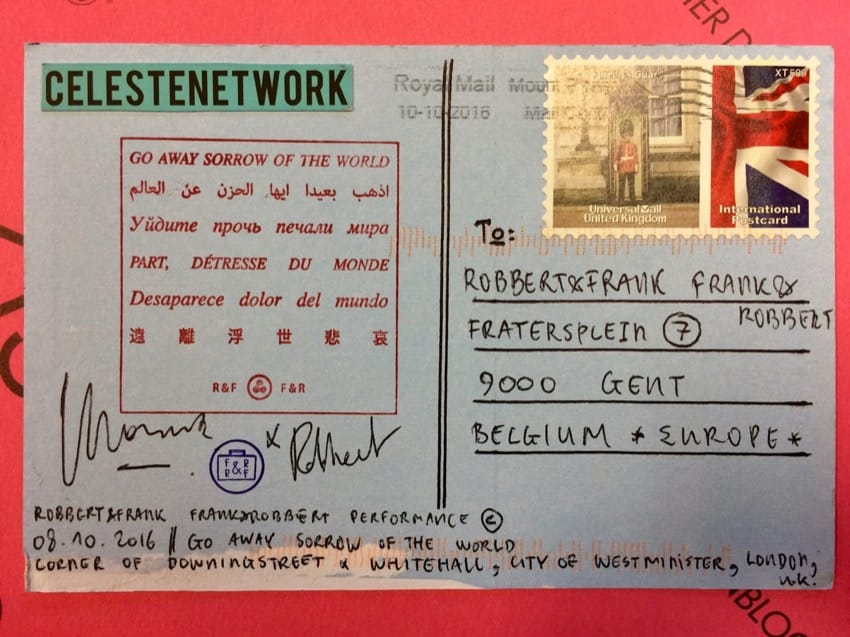 CELESTENETWORK
GO AWAY SORROW OF THE WORLD
اذهب بعيدا ايها الحزن عن العالم
Уйдите прочь печали мира
PART, DÉTRESSE DU MONDE
Desaparece dolor del mundo
遠離浮世悲哀
R&F F&R
& Robbert
F R
&
R F
ROBBERT&FRANK FRANK&ROBBERT PERFORMANCE ©
08.10.2016 // GO AWAY SORROW OF THE WORLD
CORNER OF DOWNINGSTREET & WHITEHALL, CITY OF WESTMINISTER, LONDON,
UK.
Royal Mail
10-10-2016
Queen's Guard
XT500
Universal Mail
United Kingdom
International
Postcard
To:
ROBBERT&FRANK FRANK&
ROBBERT
FRATERSPLEIN 7
9000 GENT
BELGIUM * EUROPE *